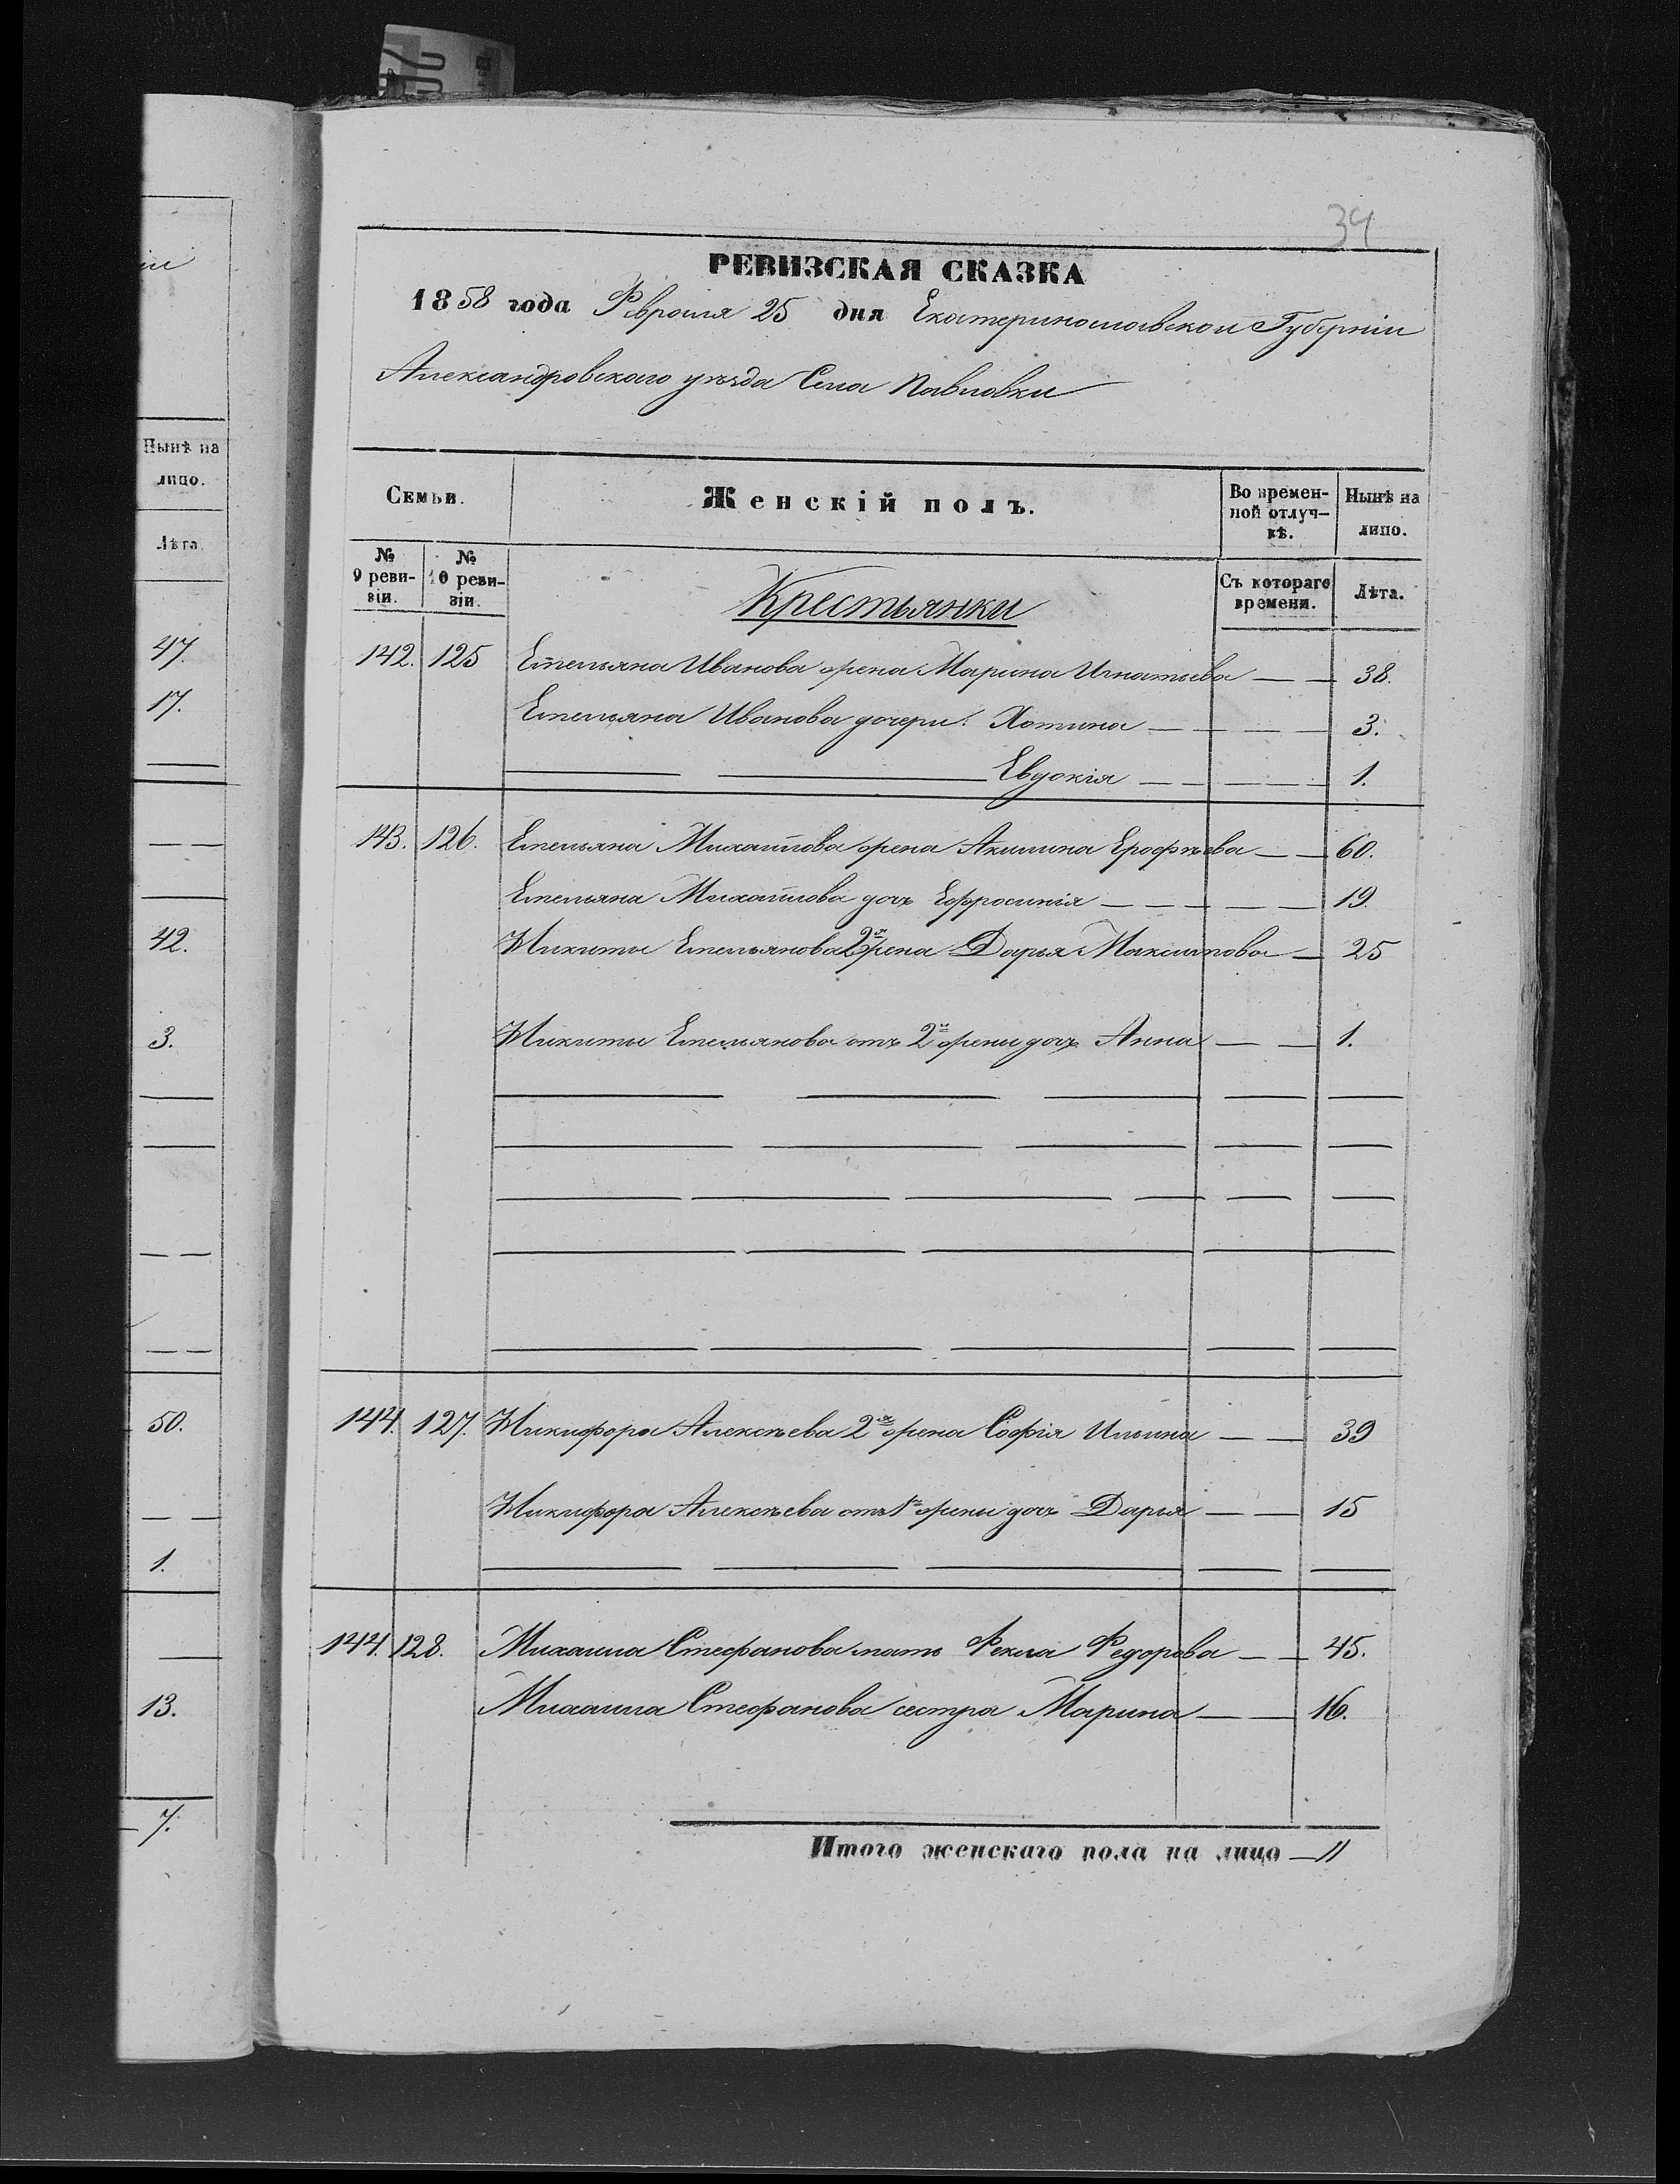 34
РЕВИЗСКАЯ СКАЗКА
1858 года Февраля 25 дня Екатеринославской Губерніи
Александровскаго уѣзда Села Павловки
Семьи. Женскій полъ. Во времен-ной отлуч-кѣ. Нынѣ на лицо.
№ 9 реви-зіи. № 10 реви-зіи. Съ котораго времени. Лѣта.
Крестьянки
142. 125 Емельяна Иванова жена Марина Игнатьева — — 38.
Емельяна Иванова дочери: Хотина — — — — 3.
Евдокія — — — — 1.
143. 126. Емельяна Михайлова жена Акилина Ерофѣева — — 60.
Емельяна Михайлова дочь Ефросинія — — — — — 19.
Никиты Емельянова 2я жена Дарья Максимова — 25
Никиты Емельянова отъ 2й жены дочь Анна — — 1.
144. 127. Никифора Алексѣева 2я жена Софія Ильина — — 39
Никифора Алексѣева отъ 1й жены дочь Дарья — — 15
144. 128. Михаила Стефанова мать Фекла Федорова — — 45.
Михаила Стефанова сестра Марина — — 16.
Итого женскаго пола на лицо — 11
Нынѣ на
лицо.
Лѣта
47.
17.
42.
3.
50.
1.
13.
7.